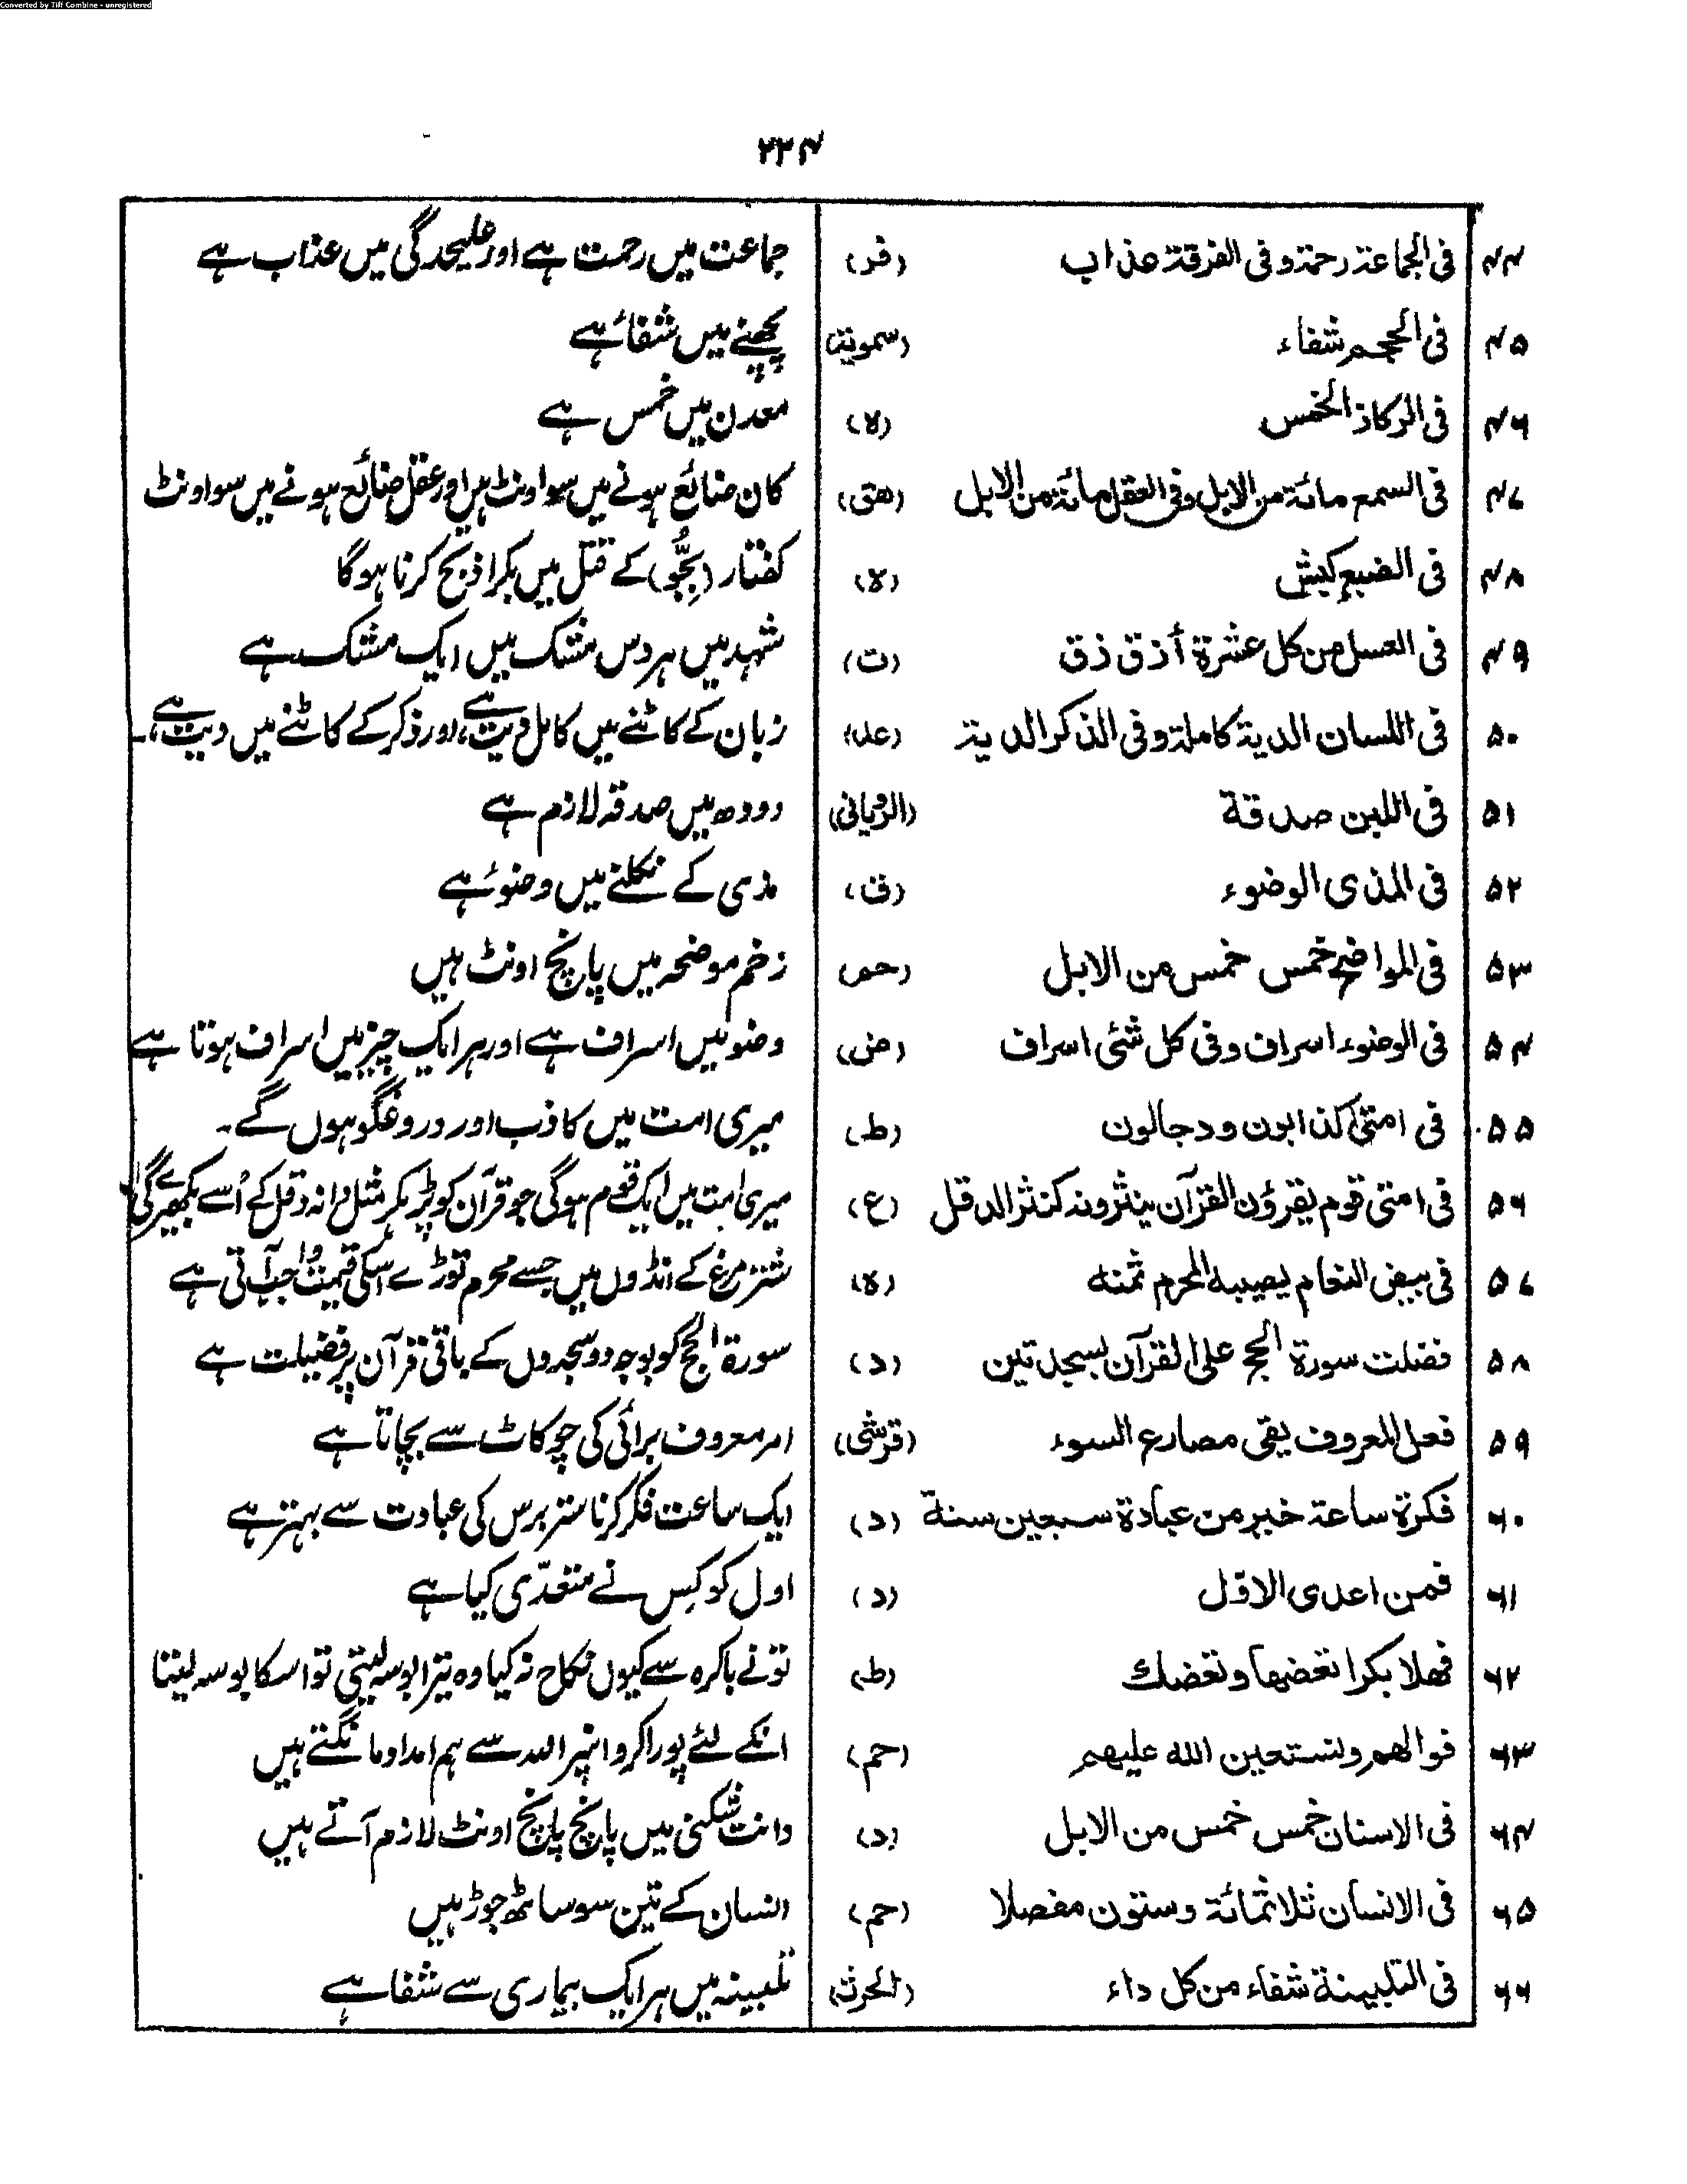 Converted by Tiff Combine - unregistered
۲۲۴
۴۴ فی الجماعة رحمة وفی الفرقة عذاب (فر) جماعت میں رحمت ہے اور علیحدگی میں عذاب ہے
۴۵ فی الحجم شفاء (سمویة) پچھنے میں شفائہے
۴۶ فی الرکاز الخمس (لا) معدن میں خمس ہے
۴۷ فی السمع مائة من الابل وفی العقل مائة من الابل (هتی) کان ضائع ہونے میں سو اونٹ ہیں اور عقل ضائع ہونے میں سو اونٹ
۴۸ فی الضبع کبش (لا) کفتار (بجّو) کے قتل میں بکرا ذبح کرنا ہوگا
۴۹ فی العسل من کل عشرة أذق ذق (ت) شہد میں ہر دس مشک میں ایک مشک ہے
۵۰ فی اللسان الدیة کاملة وفی الذکر الدیة (عد) زبان کے کاٹنے میں کامل دیت ہے، اور ذکر کے کاٹنے میں دیت ہے،۔
۵۱ فی اللبن صدقة (الرویانی) دودھ میں صدقہ لازم ہے
۵۲ فی المذی الوضوء (ق) مذی کے نکلنے میں وضوئہے
۵۳ فی المواضح خمس خمس من الابل (حم) زخم موضحہ میں پانچ اونٹ ہیں
۵۴ فی الوضوء اسراف وفی کل شئی اسراف (ض) وضو میں اسراف ہے اور ہر ایک چیز میں اسراف ہوتا ہے
۵۵ فی امتی کذابون ودجالون (ط) میری امت میں کاذب اور دروغگو ہوں گے۔
۵۶ فی امتی قوم یقرؤن القرآن ینثرونه کنثر الدقل (ع) میری امت میں ایک قوم ہوگی جو قرآن کو پڑہکر مثل دانہ دقل کے اُسے بکھیرے گی
۵۷ فی بیض النعام یصیبه المحرم ثمنه (لا) شتر مرغ کے انڈوں میں جسے محرم توڑے اسکی قیمت واجب آتی ہے
۵۸ فضلت سورة الحج علی القرآن بسجدتین (د) سورۃ الحج کو بوجہ دو سجدوں کے باقی قرآن پر فضیلت ہے
۵۹ فعل المعروف یقی مصارع السوء (قرشی) امر معروف برائی کی چوکاٹ سے بچاتا ہے
۶۰ فکرة ساعة خیر من عبادة سبعین سنة (د) ایک ساعت فکر کرنا ستر برس کی عبادت سے بہتر ہے
۶۱ فمن اعدی الاوّل (د) اول کو کس نے متعدّی کیا ہے
۶۲ فهلا بکرا تعضها وتعضك (طہ) تونے باکرہ سے کیوں نکاح نہ کیا وہ تیرا بوسہ لیتی تو اسکا بوسہ لیتا
۶۳ فوا لهم ونستعین الله علیهم (حم) انکے لئے پورا کرو انپر اللہ سے ہم امداد مانگتے ہیں
۶۴ فی الاسنان خمس خمس من الابل (د) دانت شکنی میں پانچ پانچ اونٹ لازم آتے ہیں
۶۵ فی الانسان ثلاثمائة وستون مفصلا (حم) انسان کے تین سو ساٹھ جوڑ ہیں
۶۶ فی التلبینة شفاء من کل داء (الحرث) تلبینہ میں ہر ایک بیماری سے شفا ہے